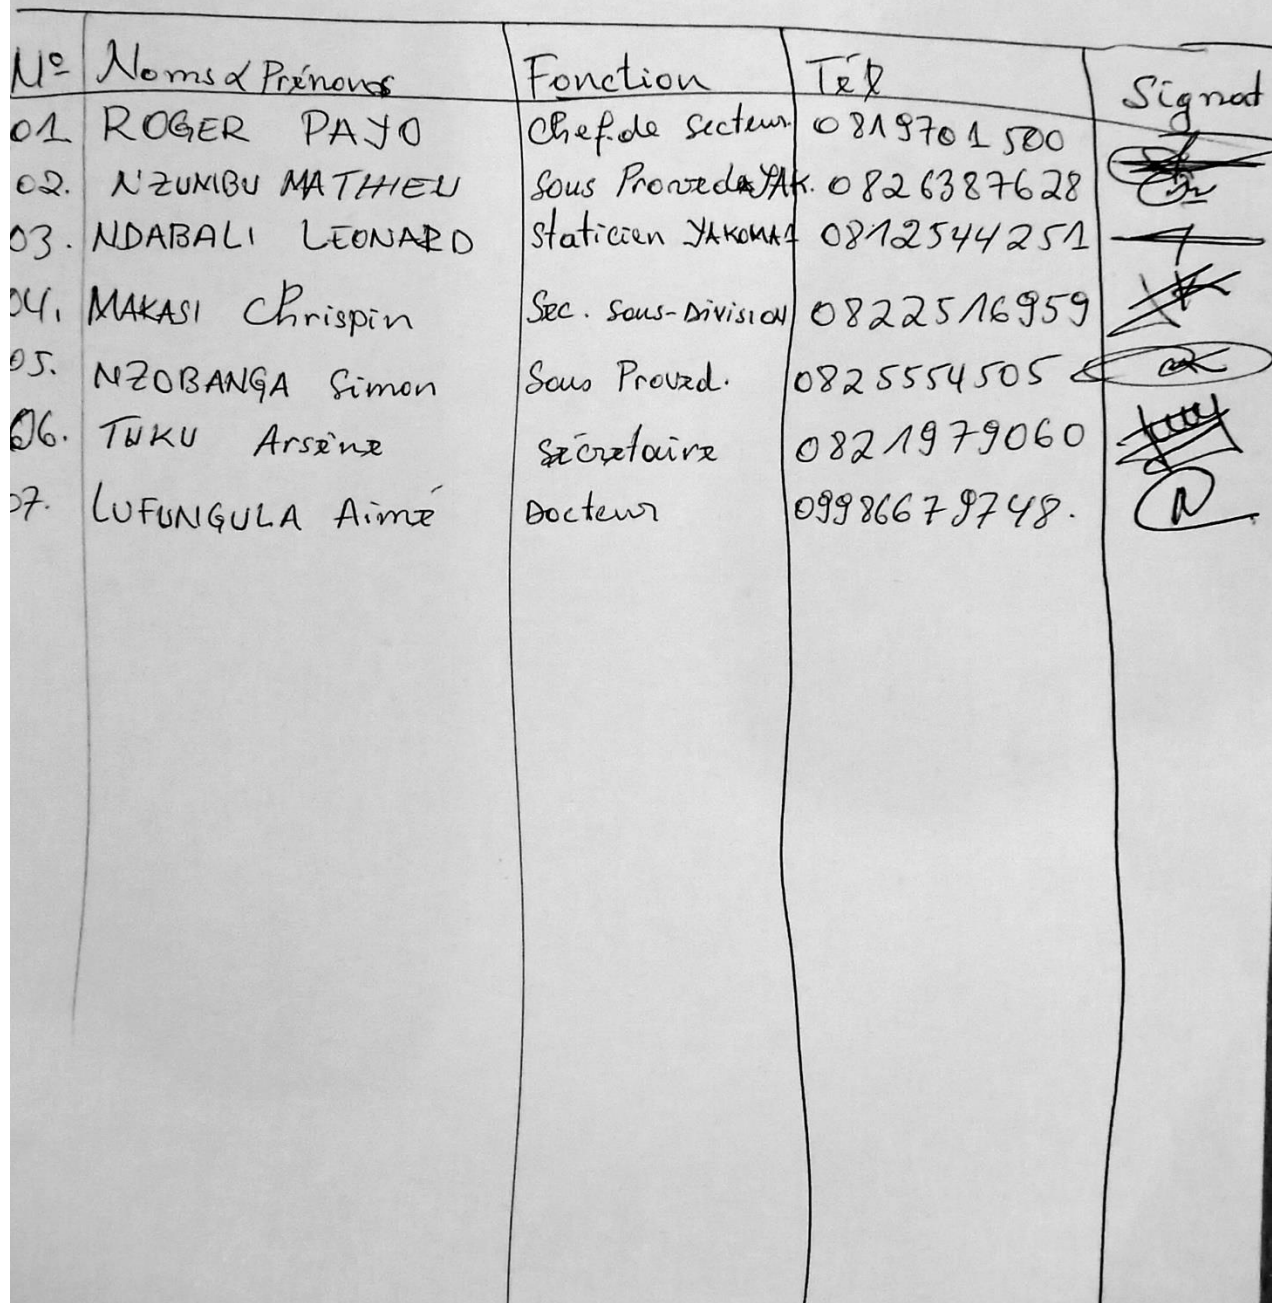 Nº Noms & Prénoms Fonction Tél Signat
01 ROGER PAYO Chef de Secteur 0819701500
02. N'ZUMBU MATHIEU Sous Proved YAK. 0826387628
03. NDABALI LEONARD Staticien YAKOMA 0812544251
04. MAKASI Chrispin Sec. Sous-Division 0822516959
05. NZOBANGA Simon Sous Proved. 0825554505
06. TUKU Arsène Sécretaire 0821979060
07. LUFUNGULA Aimé Docteur 09986679748.